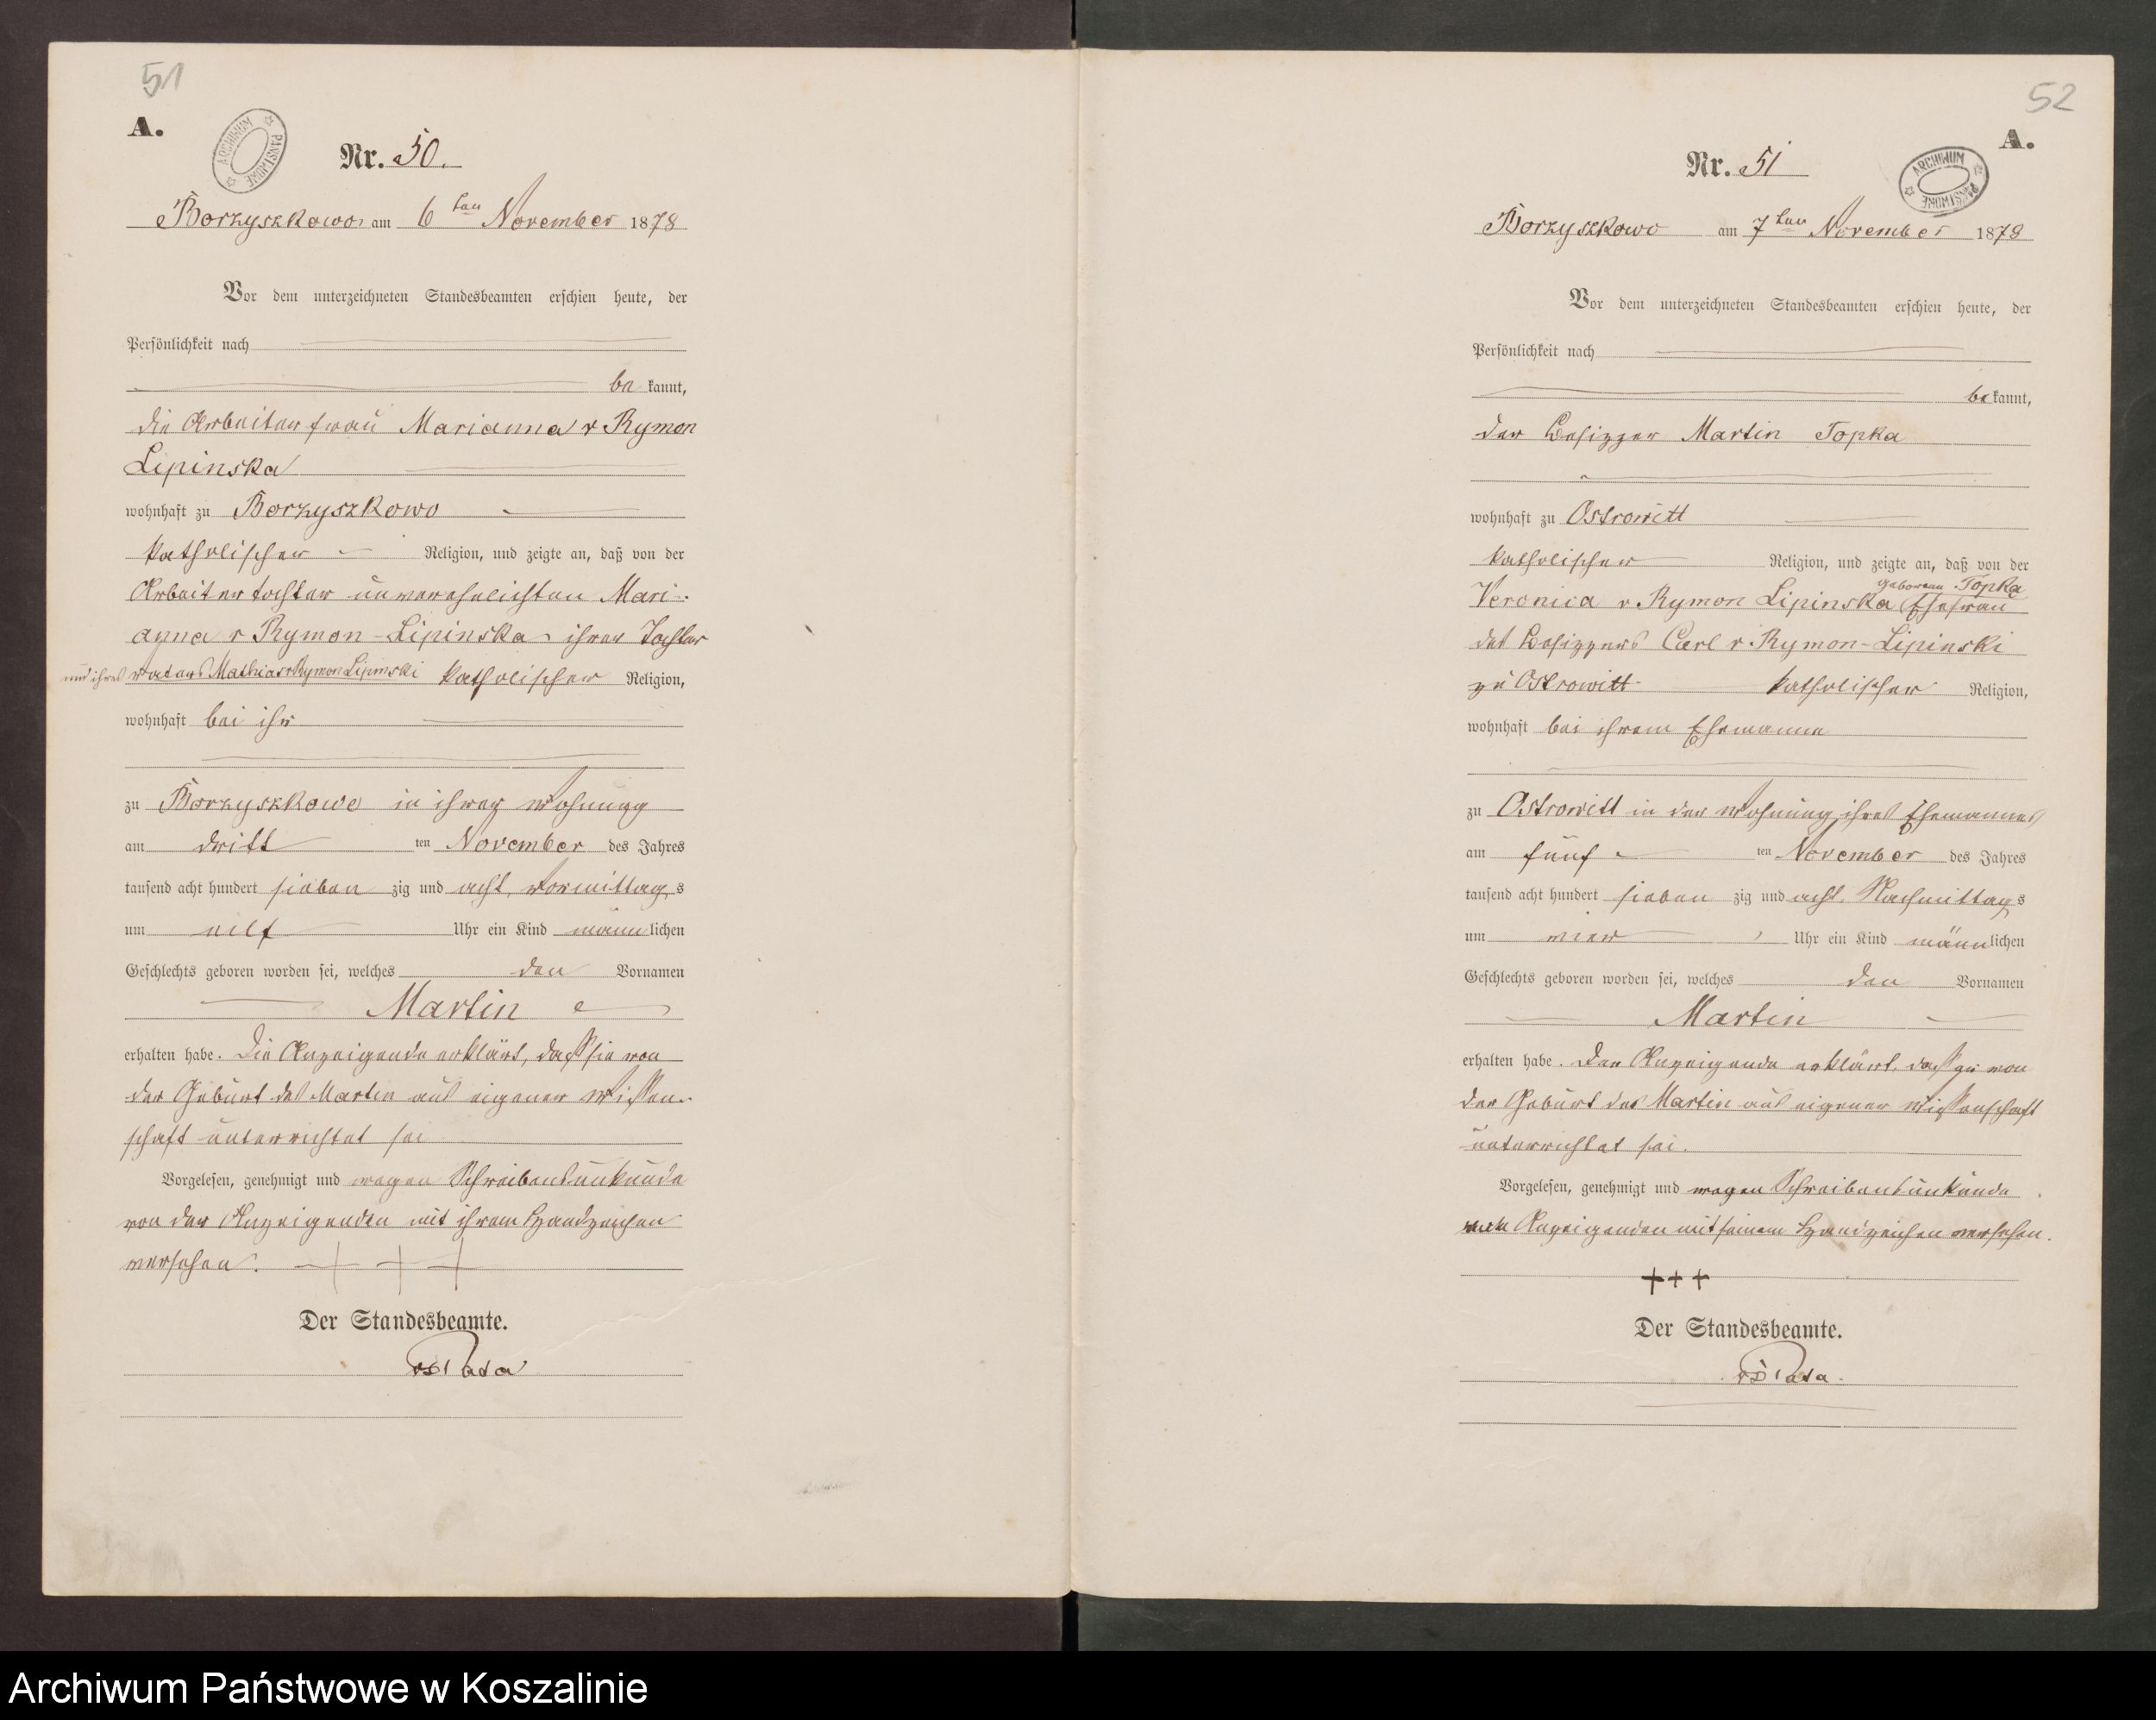 51
A.
ARCHIWUM PAŃSTWOWE
Nr. 50.
Borzyszkowo am 6ten November 1878
Vor dem unterzeichneten Standesbeamten erschien heute, der
Persönlichkeit nach
be kannt,
die Arbeiterfrau Marianna v Rymon
Lipinska
wohnhaft zu Borzyszkowo
katholischer Religion, und zeigte an, daß von der
Arbeitertochter unverehelichten Mari-
anna v Rymon-Lipinska ihrer Tochter
und ihres Vaters Mathias v Rymon Lipinski katholischer Religion,
wohnhaft bei ihr
zu Borzyszkowo in ihrer Wohnung
am dritt ten November des Jahres
tausend acht hundert sieben zig und acht, Vormittags
um eilf Uhr ein Kind männlichen
Geschlechts geboren worden sei, welches den Vornamen
Martin
erhalten habe. Die Anzeigende erklärt, daß sie von
der Geburt des Martin aus eigener Wissen-
schaft unterrichtet sei
Vorgelesen, genehmigt und wegen Schreibensunkunde
von der Anzeigenden mit ihrem Handzeichen
versehen. + + +
Der Standesbeamte.
52
A.
ARCHIWUM PAŃSTWOWE
Nr. 51
Borzyszkowo am 7ten November 1878
Vor dem unterzeichneten Standesbeamten erschien heute, der
Persönlichkeit nach
be kannt,
der Besitzer Martin Topka
wohnhaft zu Ostrowitt
katholischer Religion, und zeigte an, daß von der
geborenen Topka
Veronica v Rymon Lipinska Ehefrau
des Besitzers Carl v Rymon-Lipinski
zu Ostrowitt katholischer Religion,
wohnhaft bei ihrem Ehemanne
zu Ostrowitt in der Wohnung ihres Ehemannes
am fünf ten November des Jahres
tausend acht hundert sieben zig und acht, Nachmittags
um vier Uhr ein Kind männlichen
Geschlechts geboren worden sei, welches den Vornamen
Martin
erhalten habe. Der Anzeigende erklärt, daß er von
der Geburt des Martin aus eigener Wissenschaft
unterrichtet sei.
Vorgelesen, genehmigt und wegen Schreibensunkunde
vom Anzeigenden mit seinem Handzeichen versehen.
+++
Der Standesbeamte.
Archiwum Państwowe w Koszalinie